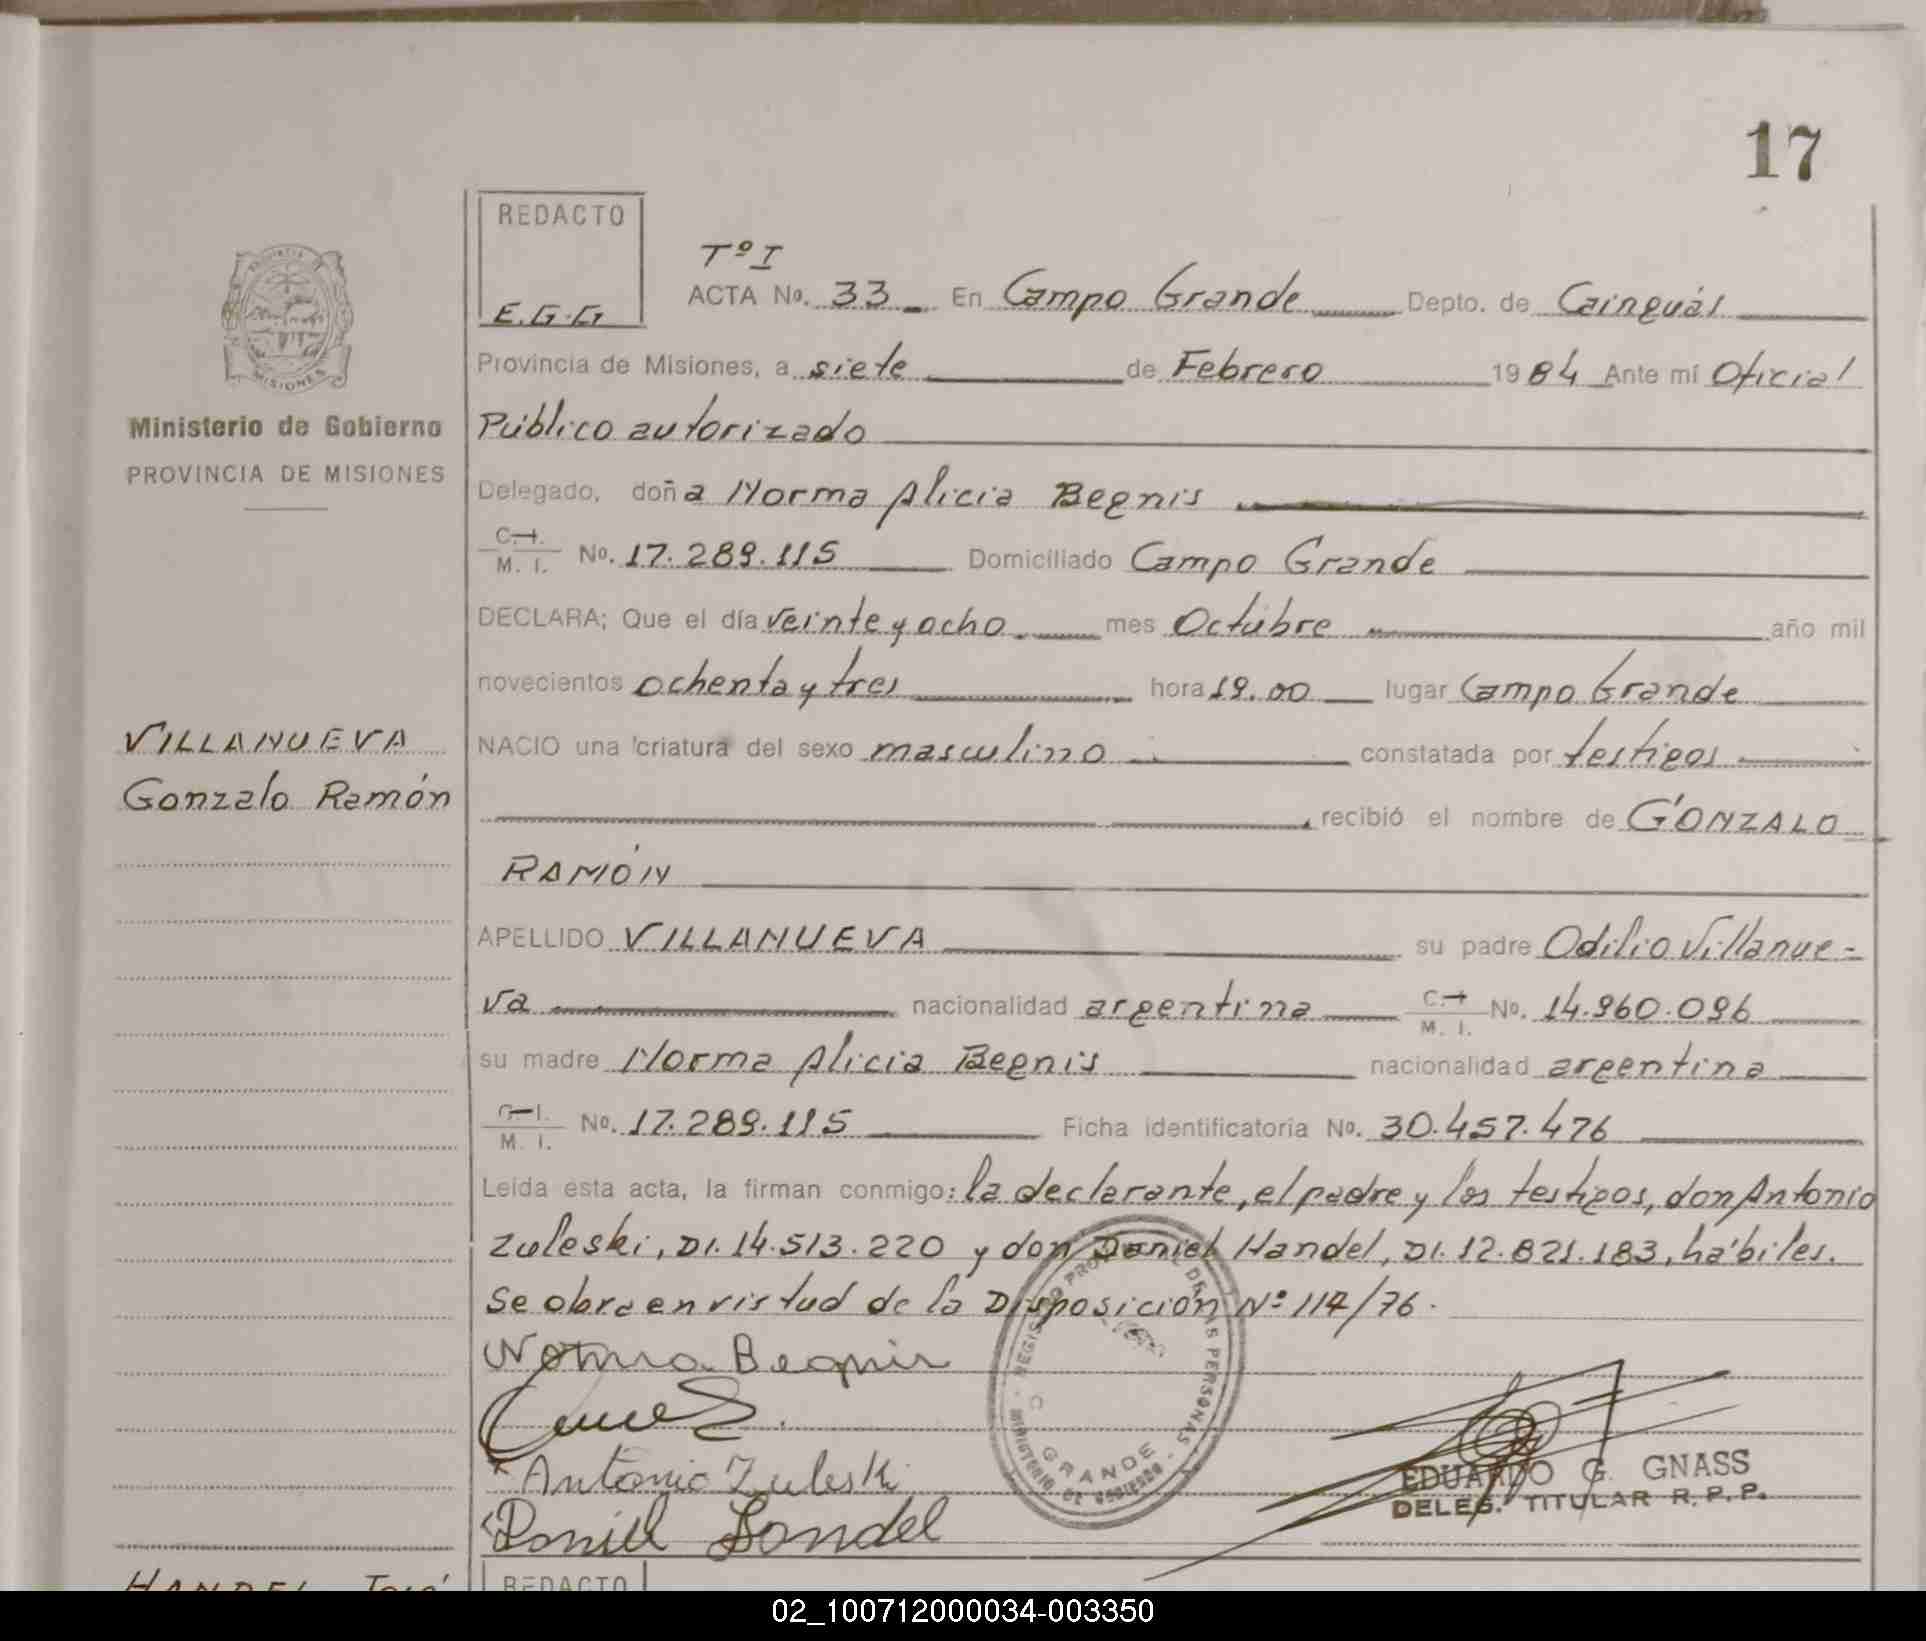 17
REDACTO
E.G.G
Tº I
ACTA No. 33 En Campo Grande Depto. de Cainguás
Provincia de Misiones, a siete de Febrero 1984 Ante mí Oficial
Público autorizado
Delegado, doña Norma Alicia Begnis
C. I.
M. I. No. 17.289.115 Domiciliado Campo Grande
DECLARA; Que el día veinte y ocho mes Octubre año mil
novecientos ochenta y tres hora 19.00 lugar Campo Grande
NACIO una criatura del sexo masculino constatada por testigos
recibió el nombre de GONZALO
RAMÓN
APELLIDO VILLANUEVA su padre Odilio Villanue-
va nacionalidad argentina C. I. M. I. No. 14.960.096
su madre Norma Alicia Begnis nacionalidad argentina
C. I.
M. I. No. 17.289.115 Ficha identificatoria No. 30.457.476
Leída esta acta, la firman conmigo: la declarante, el padre y los testigos, don Antonio
Zuleski, DI. 14.513.220 y don Daniel Handel, DI. 12.821.183, hábiles.
Se obra en virtud de la Disposición Nº 114/76.
Norma Begnis
Antonio Zuleski
Daniel Handel
REGISTRO PROVINCIAL DE LAS PERSONAS
MINISTERIO DE GOBIERNO
GRANDE
EDUARDO G. GNASS
DELEG. TITULAR R.P.P.
PROVINCIA DE
MISIONES
Ministerio de Gobierno
PROVINCIA DE MISIONES
VILLANUEVA
Gonzalo Ramón
HANDEL José
REDACTO
02_100712000034-003350